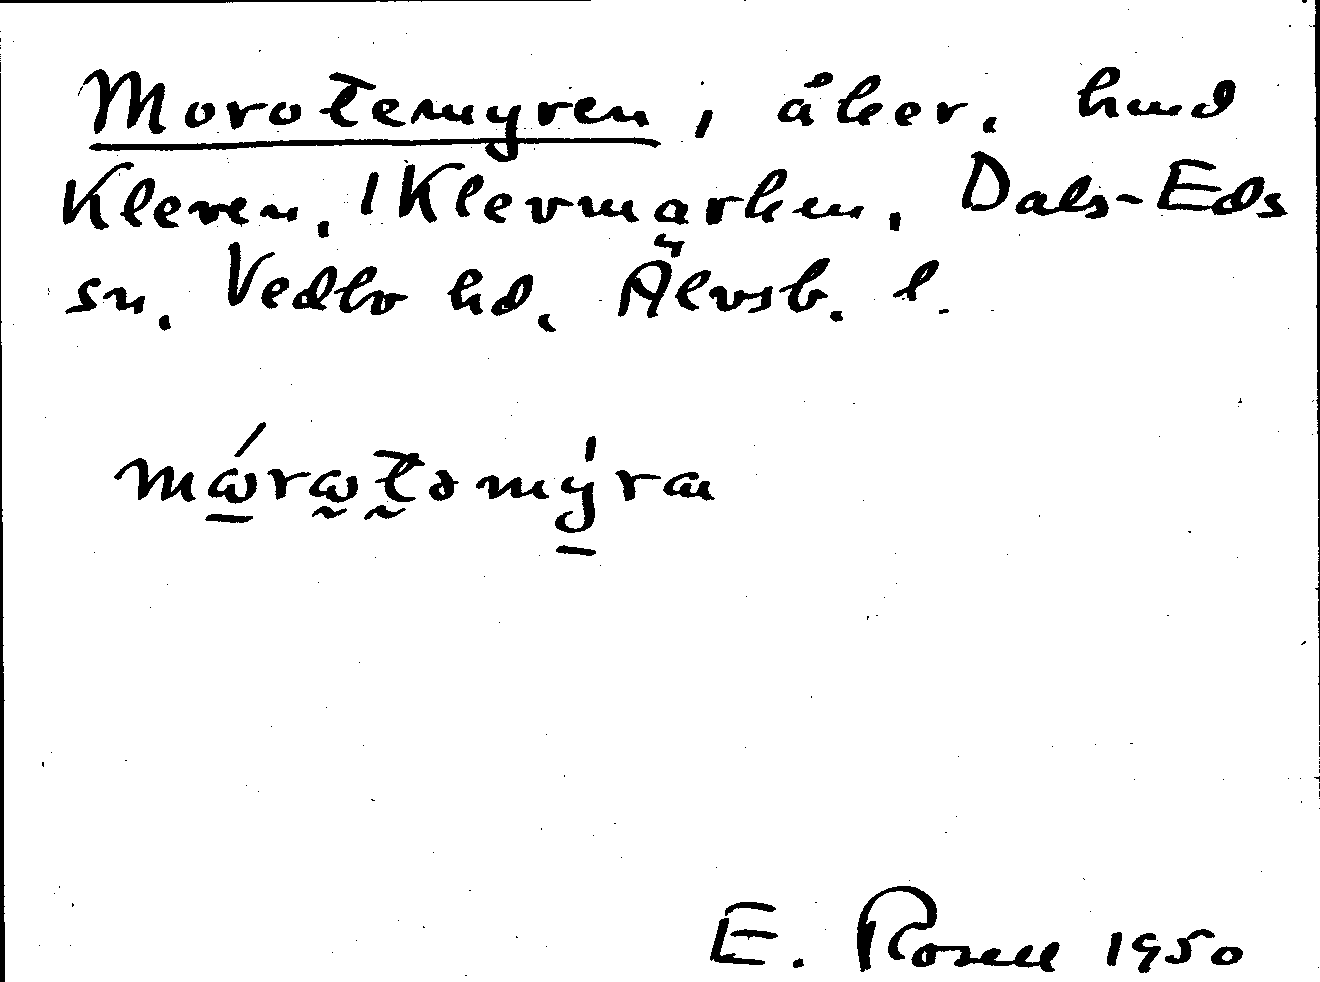 Morotemyren, åker, hmd
Kleven, 1 Klevmarken, Dals-Eds
sn, Vedbo hd, Älvsb. l.
mώrωtəmýra
E. Rosell 1950